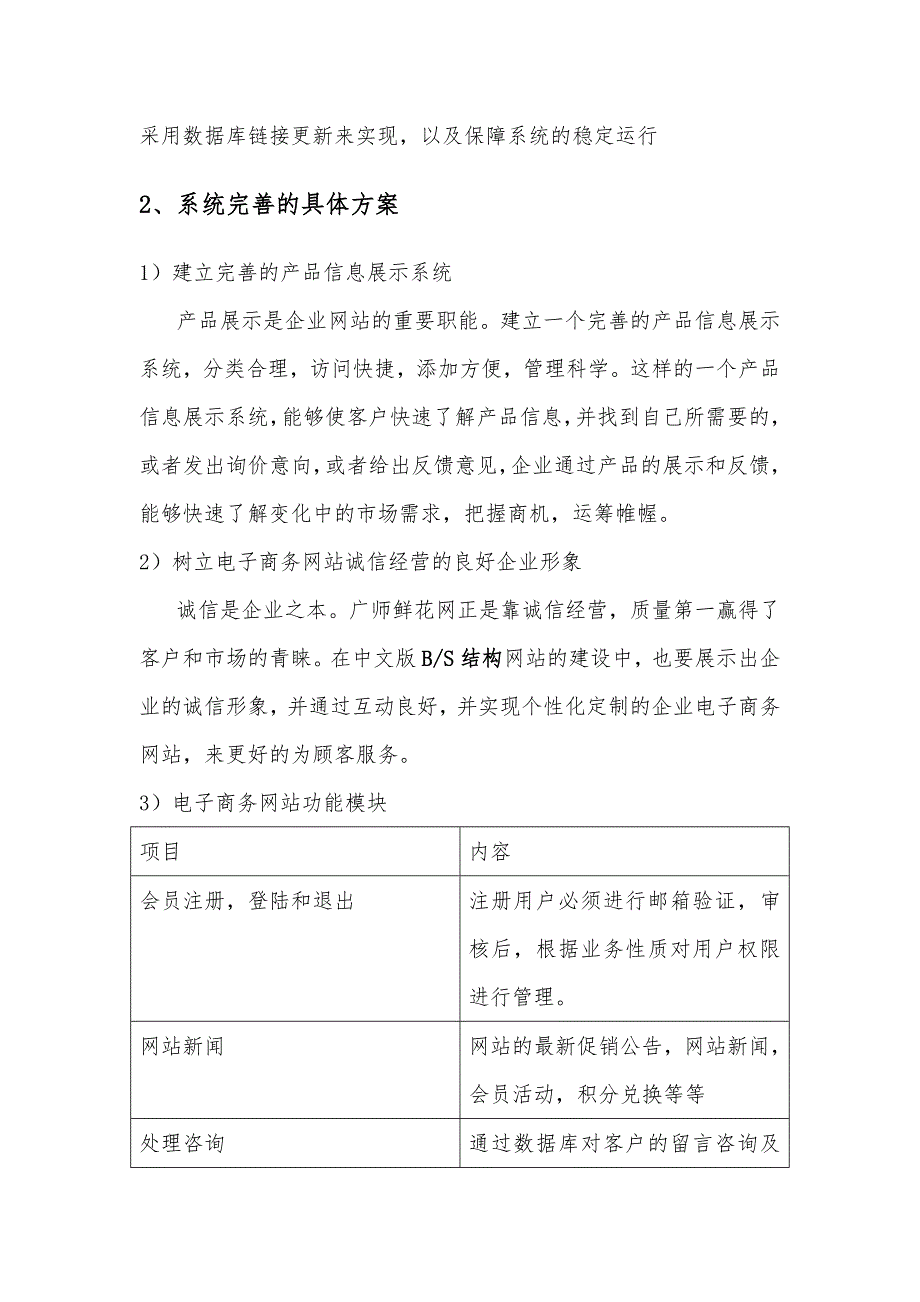 采用数据库链接更新来实现，以及保障系统的稳定运行
2、系统完善的具体方案
1）建立完善的产品信息展示系统
产品展示是企业网站的重要职能。建立一个完善的产品信息展示
系统，分类合理，访问快捷，添加方便，管理科学。这样的一个产品
信息展示系统，能够使客户快速了解产品信息，并找到自己所需要的，
或者发出询价意向，或者给出反馈意见，企业通过产品的展示和反馈，
能够快速了解变化中的市场需求，把握商机，运筹帷幄。
2）树立电子商务网站诚信经营的良好企业形象
诚信是企业之本。广师鲜花网正是靠诚信经营，质量第一赢得了
客户和市场的青睐。在中文版 B/S 结构网站的建设中，也要展示出企
业的诚信形象，并通过互动良好，并实现个性化定制的企业电子商务
网站，来更好的为顾客服务。
3）电子商务网站功能模块
项目
内容
会员注册，登陆和退出
注册用户必须进行邮箱验证，审
核后，根据业务性质对用户权限
进行管理。
网站新闻
网站的最新促销公告，网站新闻，
会员活动，积分兑换等等
处理咨询
通过数据库对客户的留言咨询及